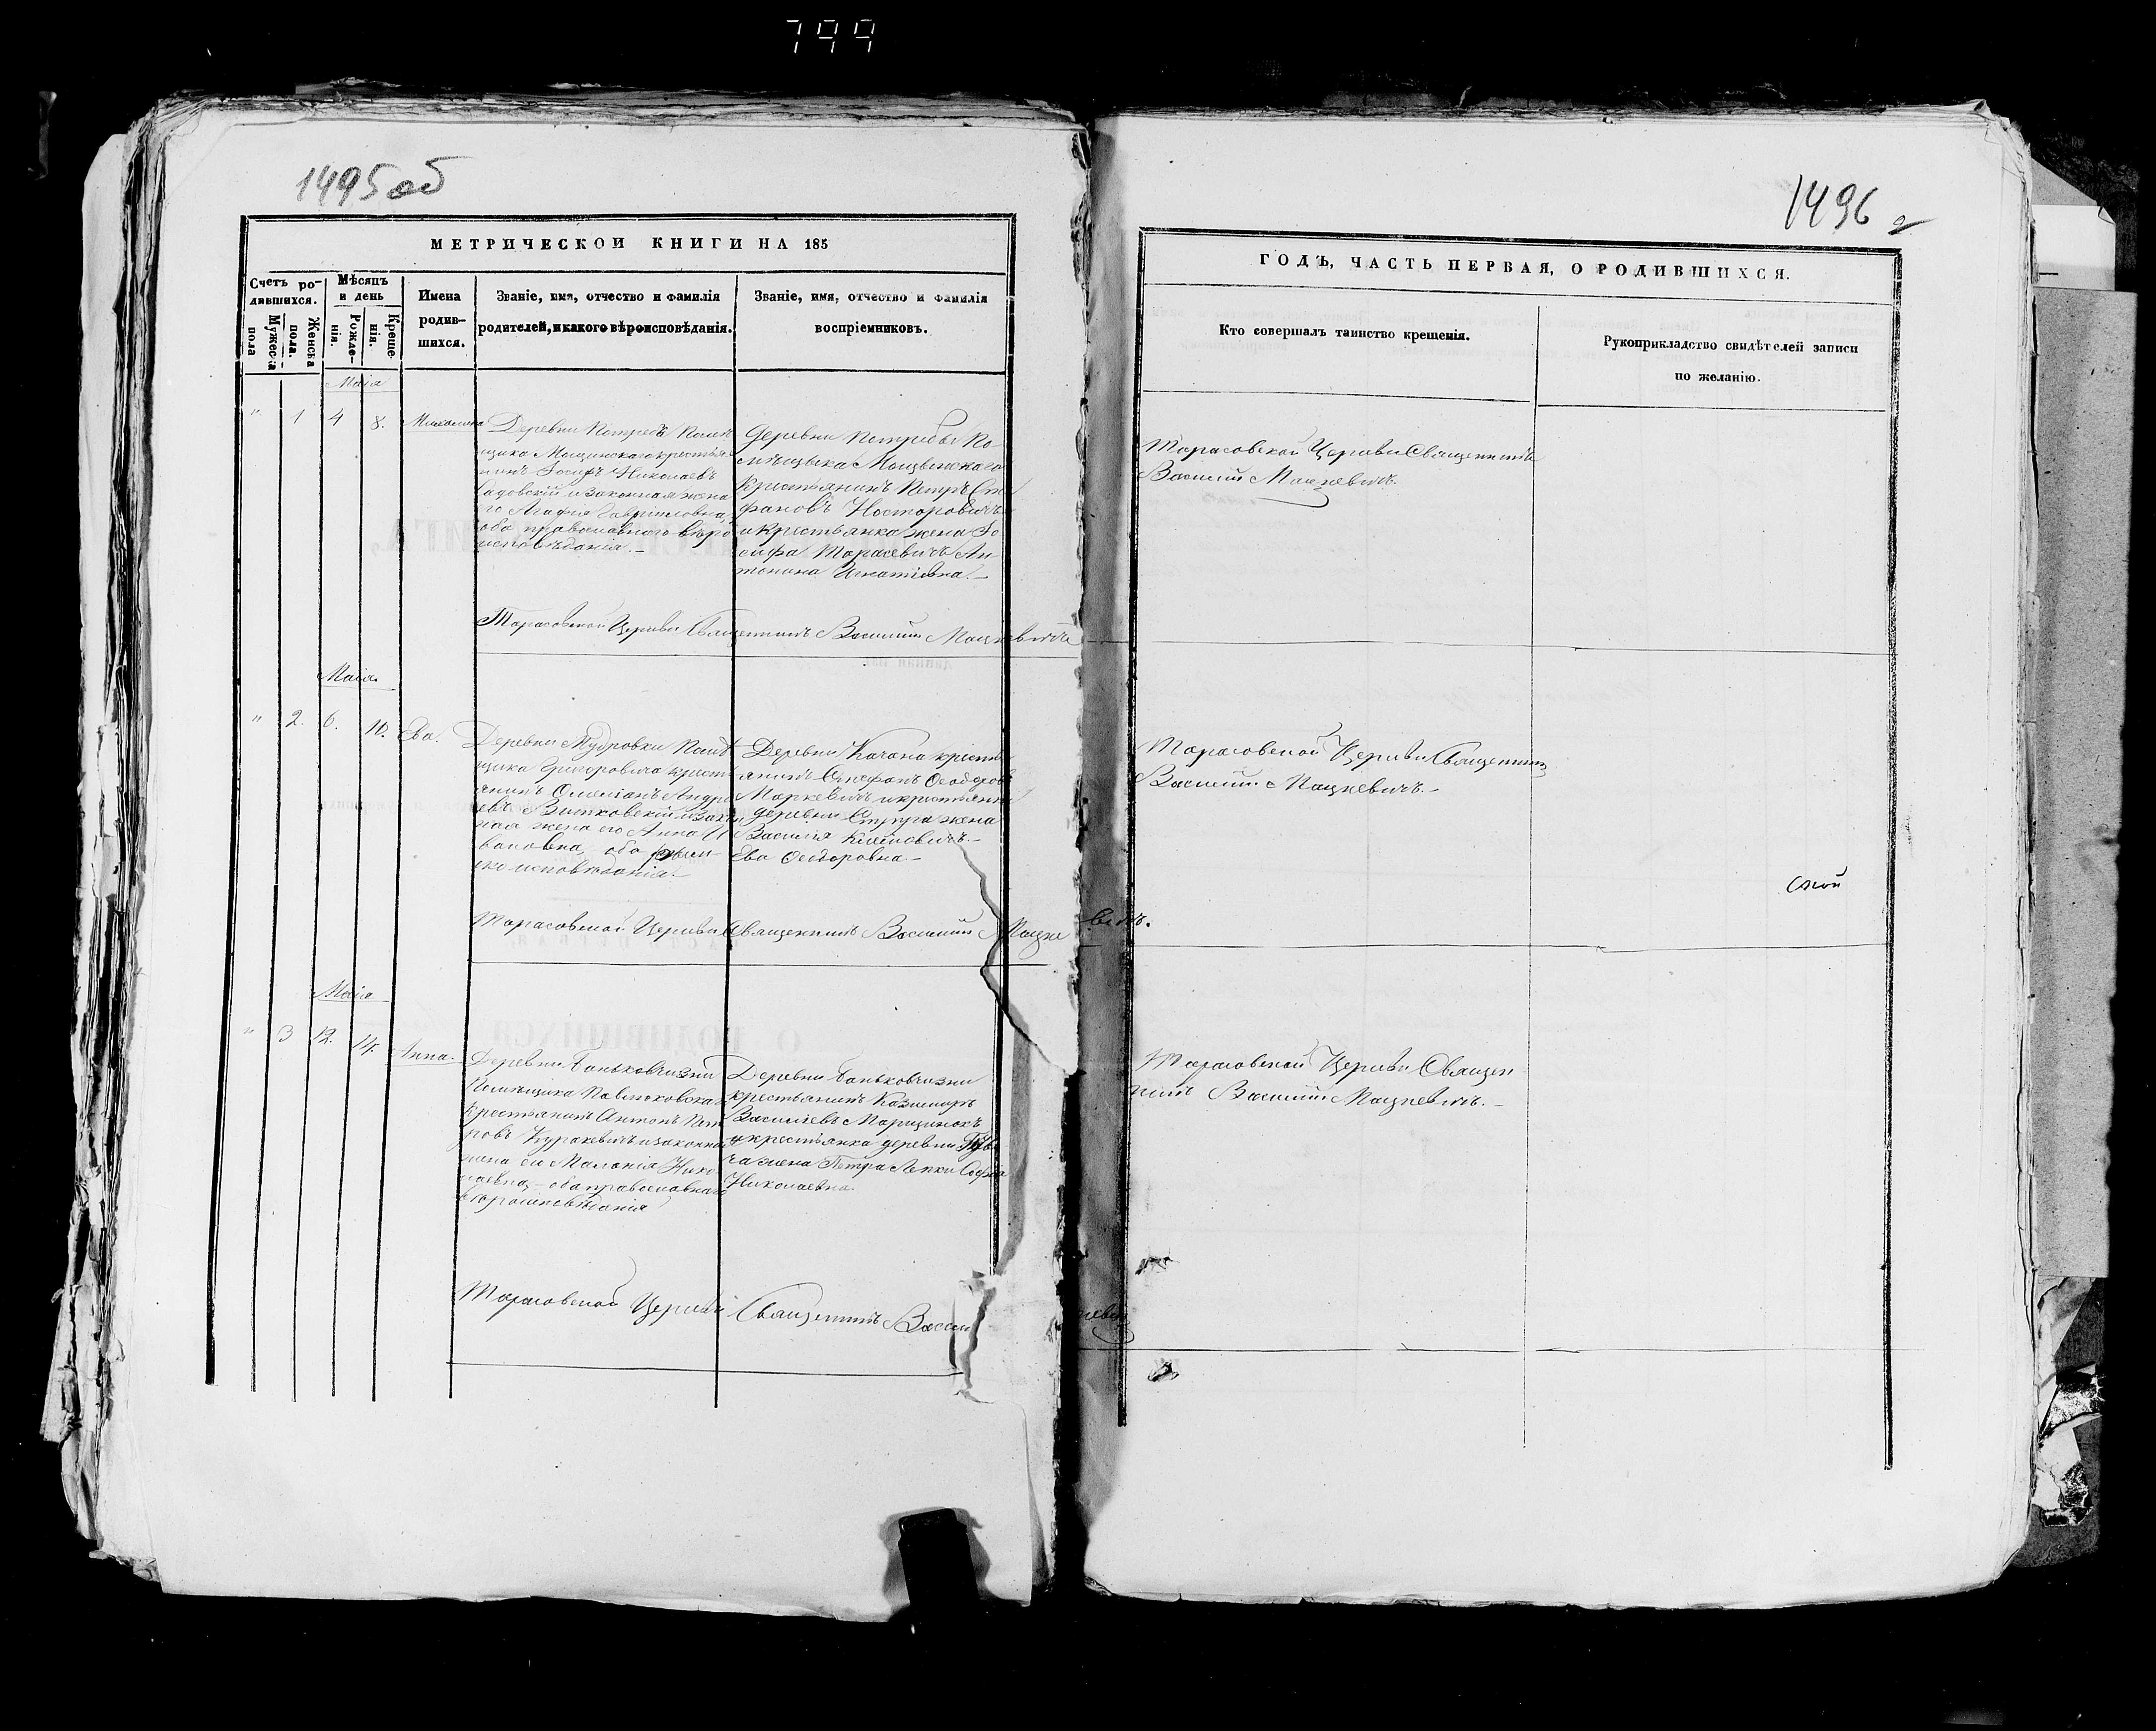 799
1495 об
МЕТРИЧЕСКОЙ КНИГИ НА 185
Счетъ ро-
дившихся.
Мужеска
пола
Женска
пола.
Мѣсяцъ
и день
Рожде-
нія.
Креще-
нія.
Имена
родив-
шихся.
Званіе, имя, отчество и фамилія
родителей, и какого вѣроисповѣданія.
Званіе, имя, отчество и фамилія
воспріемниковъ.
Маія
" 1 4 8.
Деревни
щика крестья
нинъ Іосифъ Николаевъ
Садовскій и законная жена
его Агафія Гавріиловна,
оба православнаго вѣро
исповѣданія. —
Деревни По
мѣщика
крестьянинъ Петръ Сте
фановъ Несторовичъ
и крестьянка жена Іо
сифа Тарасевича Ан
тонина Игнатіевна. —
Тарасовской Церкви Священникъ Василій Мацкевичъ
Маія
" 2. 6. 10. Ева.
Деревни Мудровки Помѣ
щика Григоровича крестья
янинъ Омеліанъ Андре
евъ Витковскій и закон
ная жена его Анна И
вановна, оба
ко исповѣданія. —
Деревни Качана крестья
янинъ Стефанъ
Маркевичъ и крестьянка
деревни Струга жена
Василія
Ева Ѳеодоровна. —
Тарасовской Церкви Священникъ Василій Мацке вичъ.
Маія
" 3 12. 14. Анна.
Деревни Баньковчизни
Помѣщика
крестьянинъ Антонъ Пет
ровъ Куракевичъ и законная
жена его Маланія Нико
лаевна, — оба православнаго
вѣроисповѣданія
Деревни Баньковчизни
крестьянинъ Казимиръ
Васильевъ
и крестьянка деревни
жена Петра
Николаевна.
Тарасовской Церкви Священникъ Васил
кевич
1496
ГОДЪ, ЧАСТЬ ПЕРВАЯ, О РОДИВШИХСЯ.
Кто совершалъ таинство крещенія.
Рукоприкладство свидѣтелей записи
по желанію.
Тарасовской Церкви Священникъ
Василій Мацкевичъ.
Тарасовской Церкви Священникъ
Василій Мацкевичъ. —
Тарасовской Церкви Священ
никъ Василій Мацкевичъ. —
ской